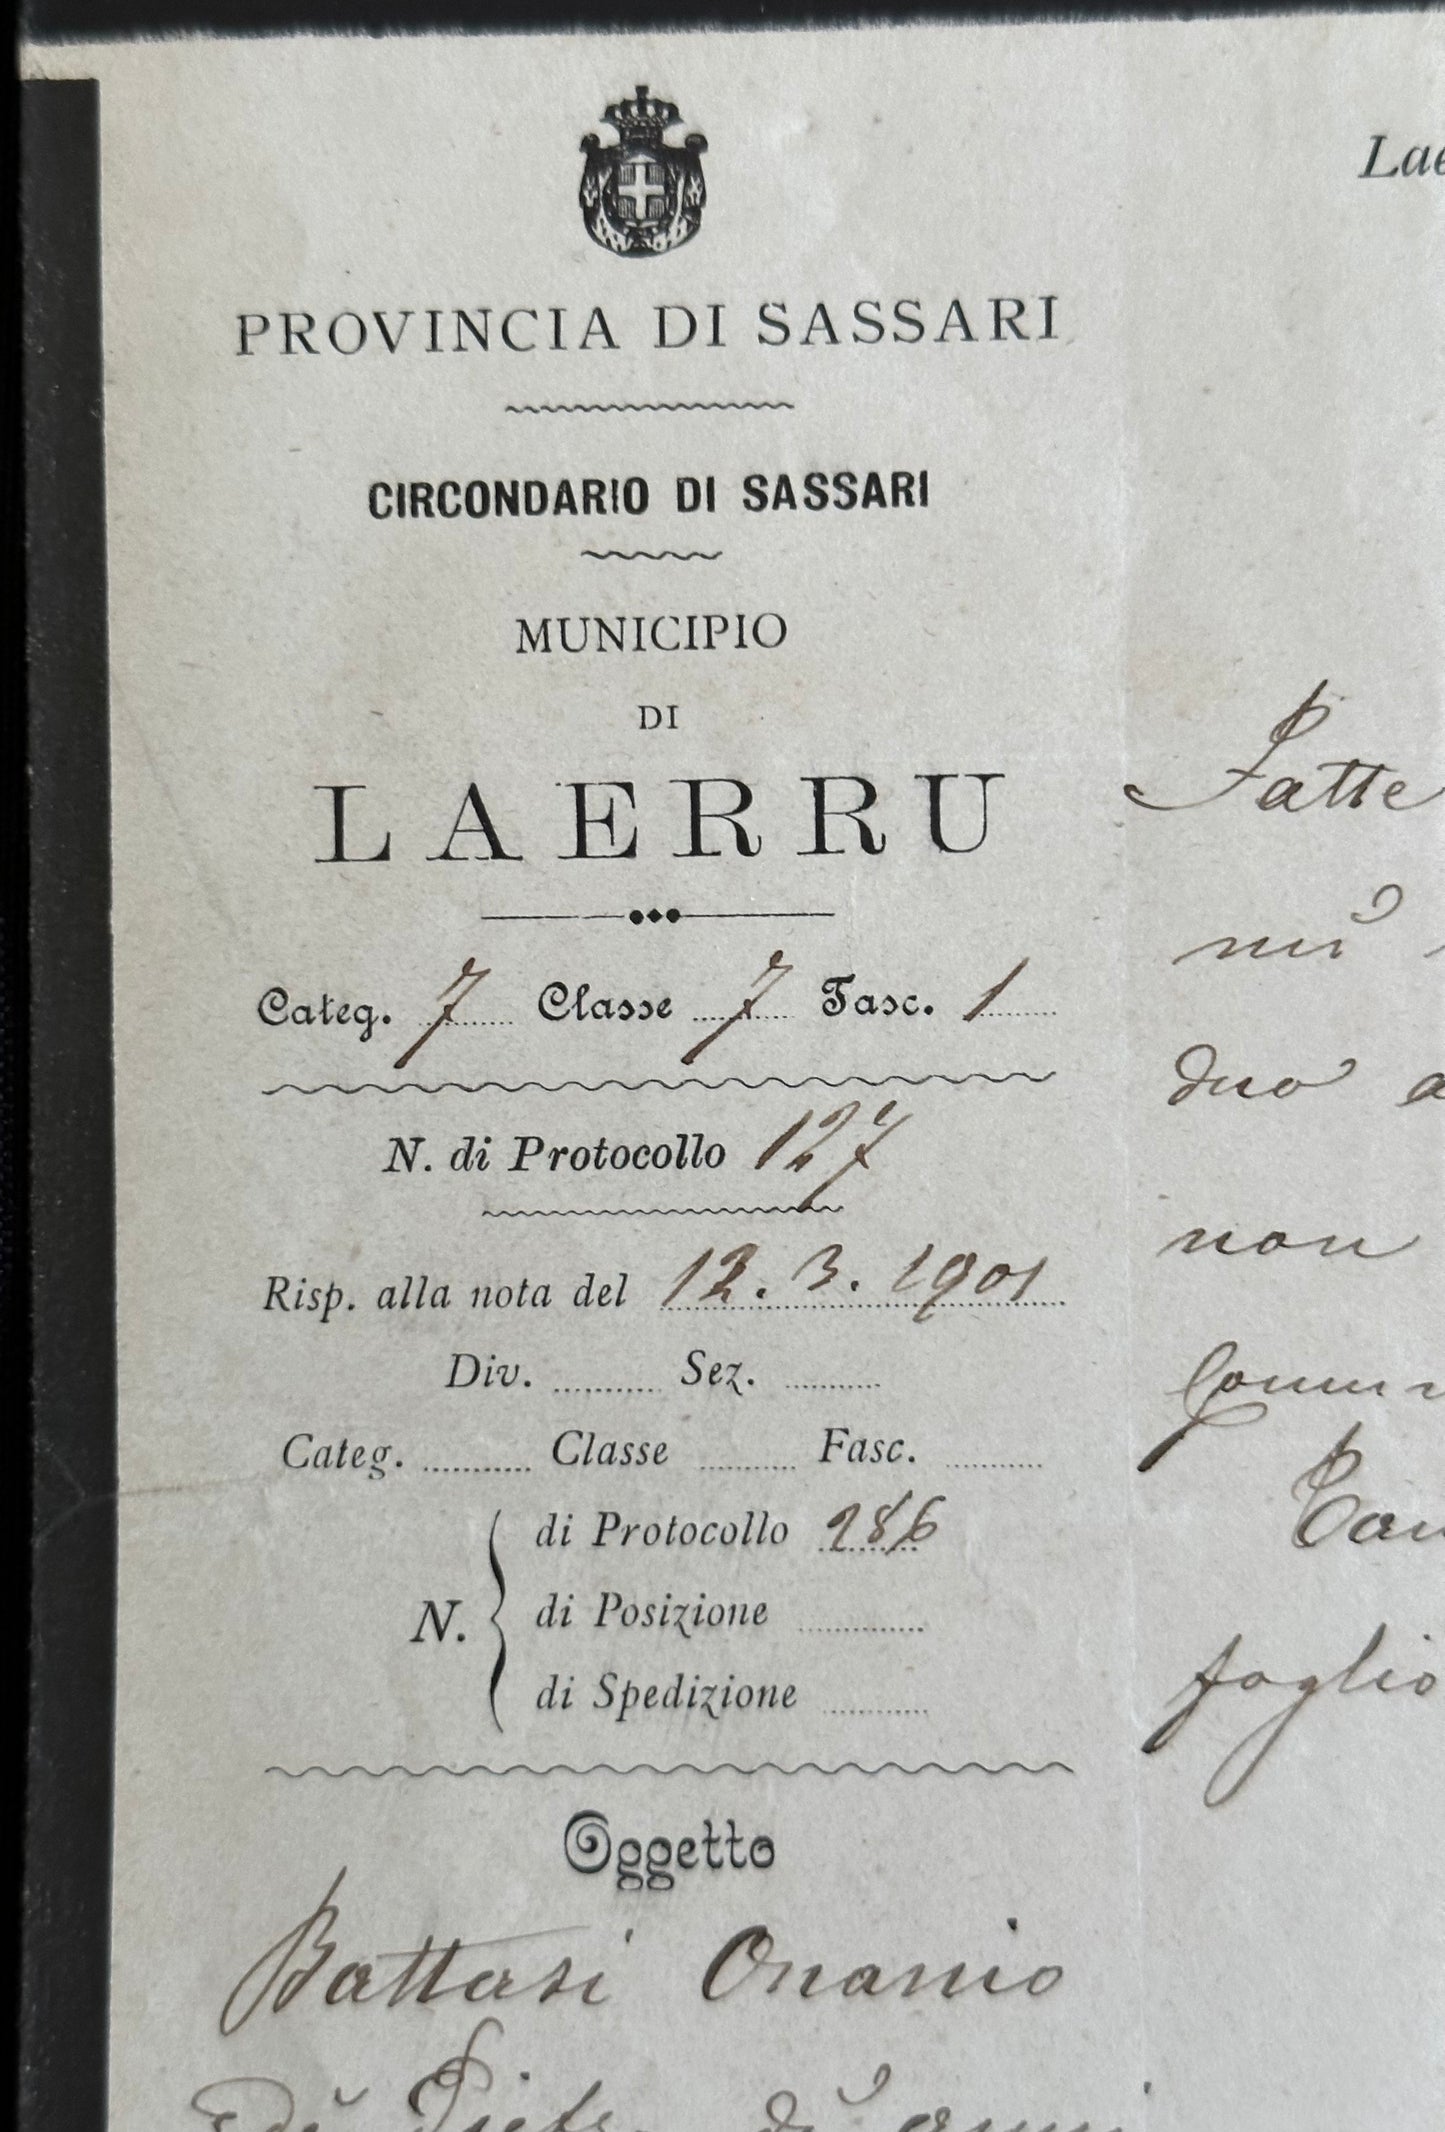 PROVINCIA DI SASSARI
CIRCONDARIO DI SASSARI
MUNICIPIO
DI
LAERRU
Categ. 7 Classe 7 Fasc. 1
N. di Protocollo 127
Risp. alla nota del 12.3.1901
Div. Sez.
Categ. Classe Fasc.
N.
di Protocollo 286
di Posizione
di Spedizione
Oggetto
Battasi Onanio
di di anni
Lae
Fatte
duo a
non
foglio